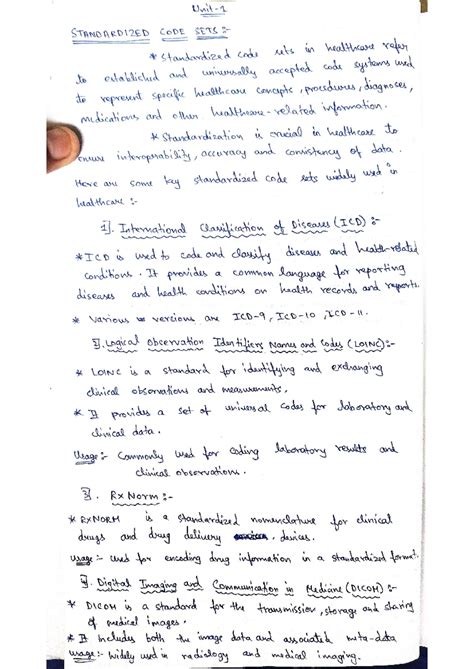 Unit-1
STANDARDIZED CODE SETS :-
* Standardized code sets in healthcare refer
to established and universally accepted code systems used
to represent specific healthcare concepts, procedures, diagnoses,
medications and other healthcare-related information.
* Standardization is crucial in healthcare to
ensure interoprability, accuracy and consistency of data.
Here are some key standardized code sets widely used in
healthcare :-
1]. International Classification of Diseases (ICD) :-
* ICD is used to code and classify diseases and health-related
conditions. It provides a common language for reporting
diseases and health conditions on health records and reports.
* Various versions are ICD-9, ICD-10, ICD-11.
2]. Logical Observation Identifiers Names and Codes (LOINC) :-
* LOINC is a standard for identifying and exchanging
clinical observations and measurements.
* It provides a set of universal codes for laboratory and
clinical data.
Usage :- Commonly used for coding laboratory results and
clinical observations.
3]. RxNorm :-
* RXNORM is a standardized nomenclature for clinical
drugs and drug delivery devices.
usage :- used for encoding drug information in a standardized format.
4]. Digital Imaging and Communication in Medicine (DICOM) :-
* DICOM is a standard for the transmission, storage and sharing
of medical images.
* It includes both the image data and associated meta-data
usage :- widely used in radiology and medical imaging.